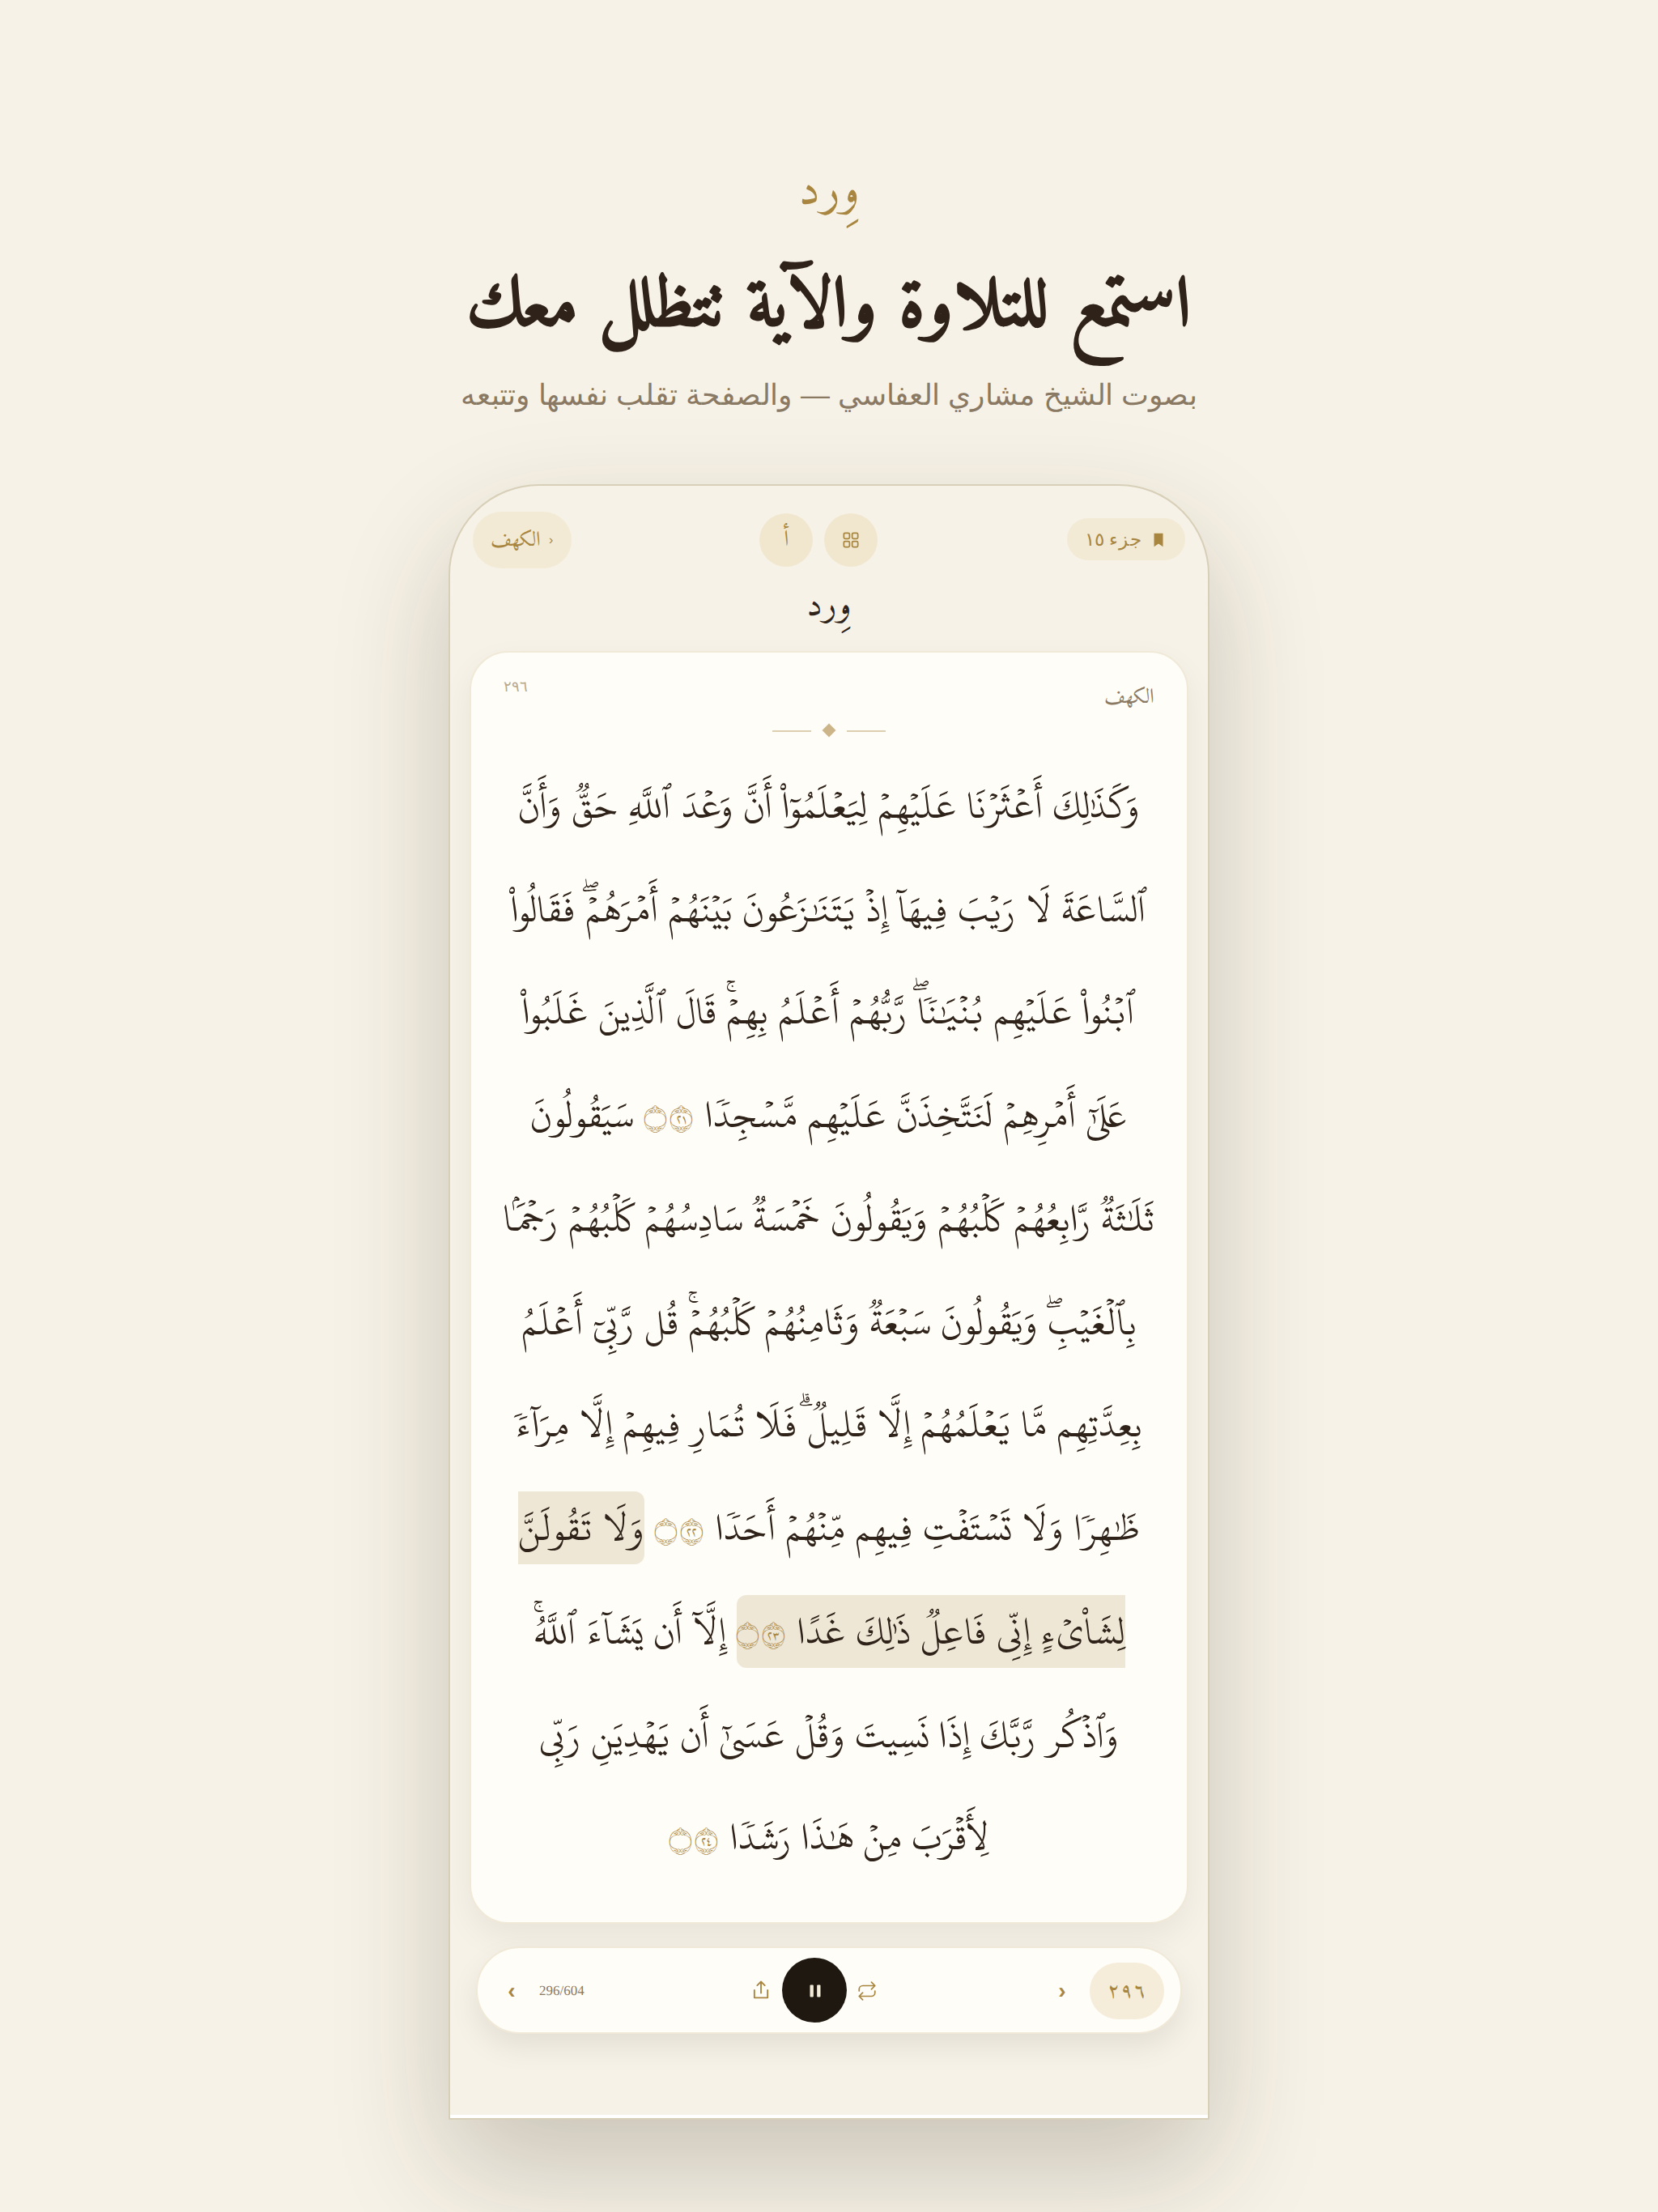 وِرد
استمع للتلاوة والآية تتظلل معك
بصوت الشيخ مشاري العفاسي — والصفحة تقلب نفسها وتتبعه
جزء ١٥
أ
‹ الكهف
وِرد
الكهف
٢٩٦
وَكَذَٰلِكَ أَعۡثَرۡنَا عَلَيۡهِمۡ لِيَعۡلَمُوٓاْ أَنَّ وَعۡدَ ٱللَّهِ حَقٌّ وَأَنَّ
ٱلسَّاعَةَ لَا رَيۡبَ فِيهَآ إِذۡ يَتَنَٰزَعُونَ بَيۡنَهُمۡ أَمۡرَهُمۡۖ فَقَالُواْ
ٱبۡنُواْ عَلَيۡهِم بُنۡيَٰنٗاۖ رَّبُّهُمۡ أَعۡلَمُ بِهِمۡۚ قَالَ ٱلَّذِينَ غَلَبُواْ
عَلَىٰٓ أَمۡرِهِمۡ لَنَتَّخِذَنَّ عَلَيۡهِم مَّسۡجِدٗا ۝٢١ سَيَقُولُونَ
ثَلَٰثَةٞ رَّابِعُهُمۡ كَلۡبُهُمۡ وَيَقُولُونَ خَمۡسَةٞ سَادِسُهُمۡ كَلۡبُهُمۡ رَجۡمَۢا
بِٱلۡغَيۡبِۖ وَيَقُولُونَ سَبۡعَةٞ وَثَامِنُهُمۡ كَلۡبُهُمۡۚ قُل رَّبِّيٓ أَعۡلَمُ
بِعِدَّتِهِم مَّا يَعۡلَمُهُمۡ إِلَّا قَلِيلٞۗ فَلَا تُمَارِ فِيهِمۡ إِلَّا مِرَآءٗ
ظَٰهِرٗا وَلَا تَسۡتَفۡتِ فِيهِم مِّنۡهُمۡ أَحَدٗا ۝٢٢ وَلَا تَقُولَنَّ
لِشَاْيۡءٍ إِنِّي فَاعِلٞ ذَٰلِكَ غَدًا ۝٢٣ إِلَّآ أَن يَشَآءَ ٱللَّهُۚ
وَٱذۡكُر رَّبَّكَ إِذَا نَسِيتَ وَقُلۡ عَسَىٰٓ أَن يَهۡدِيَنِ رَبِّي
لِأَقۡرَبَ مِنۡ هَٰذَا رَشَدٗا ۝٢٤
٢٩٦
296/604